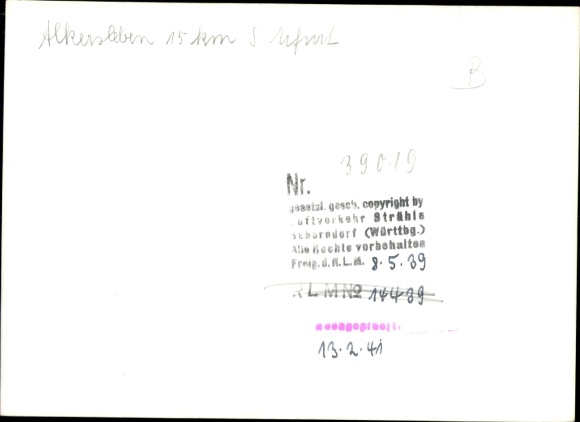 Alkersleben 15 km S Erfurt
B
Nr. 39019
gesetzl. gesch. copyright by
Luftverkehr Strähle
Schorndorf (Württbg.)
Alle Rechte vorbehalten
Freig. d. R.L.M. 8.5.39
RLM No 14439
13.2.41